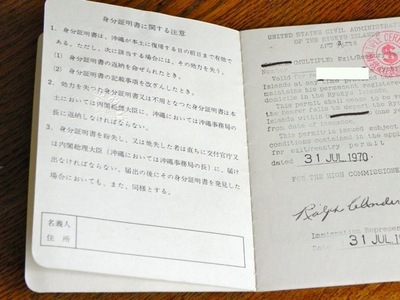 身分証明書に関する注意
1. 身分証明書は、沖縄が本土に復帰する日の前日まで有効で
ある。ただし、次に該当する場合には、その効力を失う。
(1) 身分証明書の返納を命ぜられたとき。
(2) 身分証明書の記載事項を改ざんしたとき。
2. 効力を失つた身分証明書又は不用となつた身分証明書は本
土においては内閣総理大臣に、沖縄においては沖縄事務局の
長に返納しなければならない。
3. 身分証明書を紛失し、又は他失した者は直ちに交付官庁又
は内閣総理大臣（沖縄においては沖縄事務局の長）に、届け
出なければならない。届出の後にその身分証明書を発見した
場合においても、また、同様とする。
名義人
住所
UNITED STATES CIVIL ADMINISTRATION
OF THE RYUKYU ISLANDS
(MULTIPLE) Exit/Reen
Valid for
Islands
maintains his permanent registered
domicile in the Ryukyu
This permit shall
Islands within
from date of issuance.
This permit is issued subject
conditions contained in the
for exit/entry permit
dated 31 JUL. 1970
FOR THE HIGH COMMISSIONER
Immigration Represen
Date 31 JUL. 1970